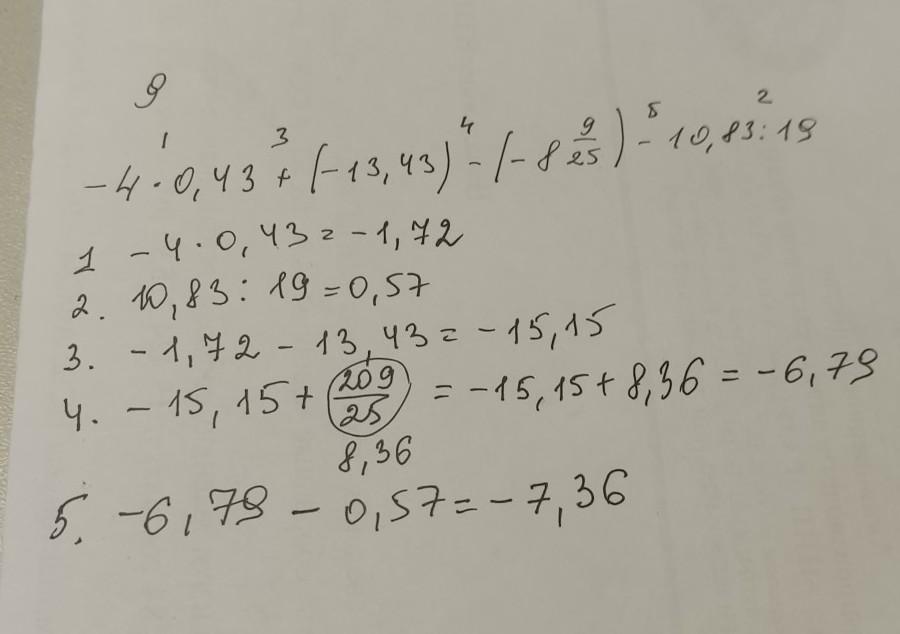 9
1 3 4 5 2
-4 · 0,43 + (-13,43) - (-8 9/25) - 10,83 : 19
1 -4 · 0,43 = -1,72
2. 10,83 : 19 = 0,57
3. -1,72 - 13,43 = -15,15
4. -15,15 + 209/25 = -15,15 + 8,36 = -6,79
8,36
5. -6,79 - 0,57 = -7,36